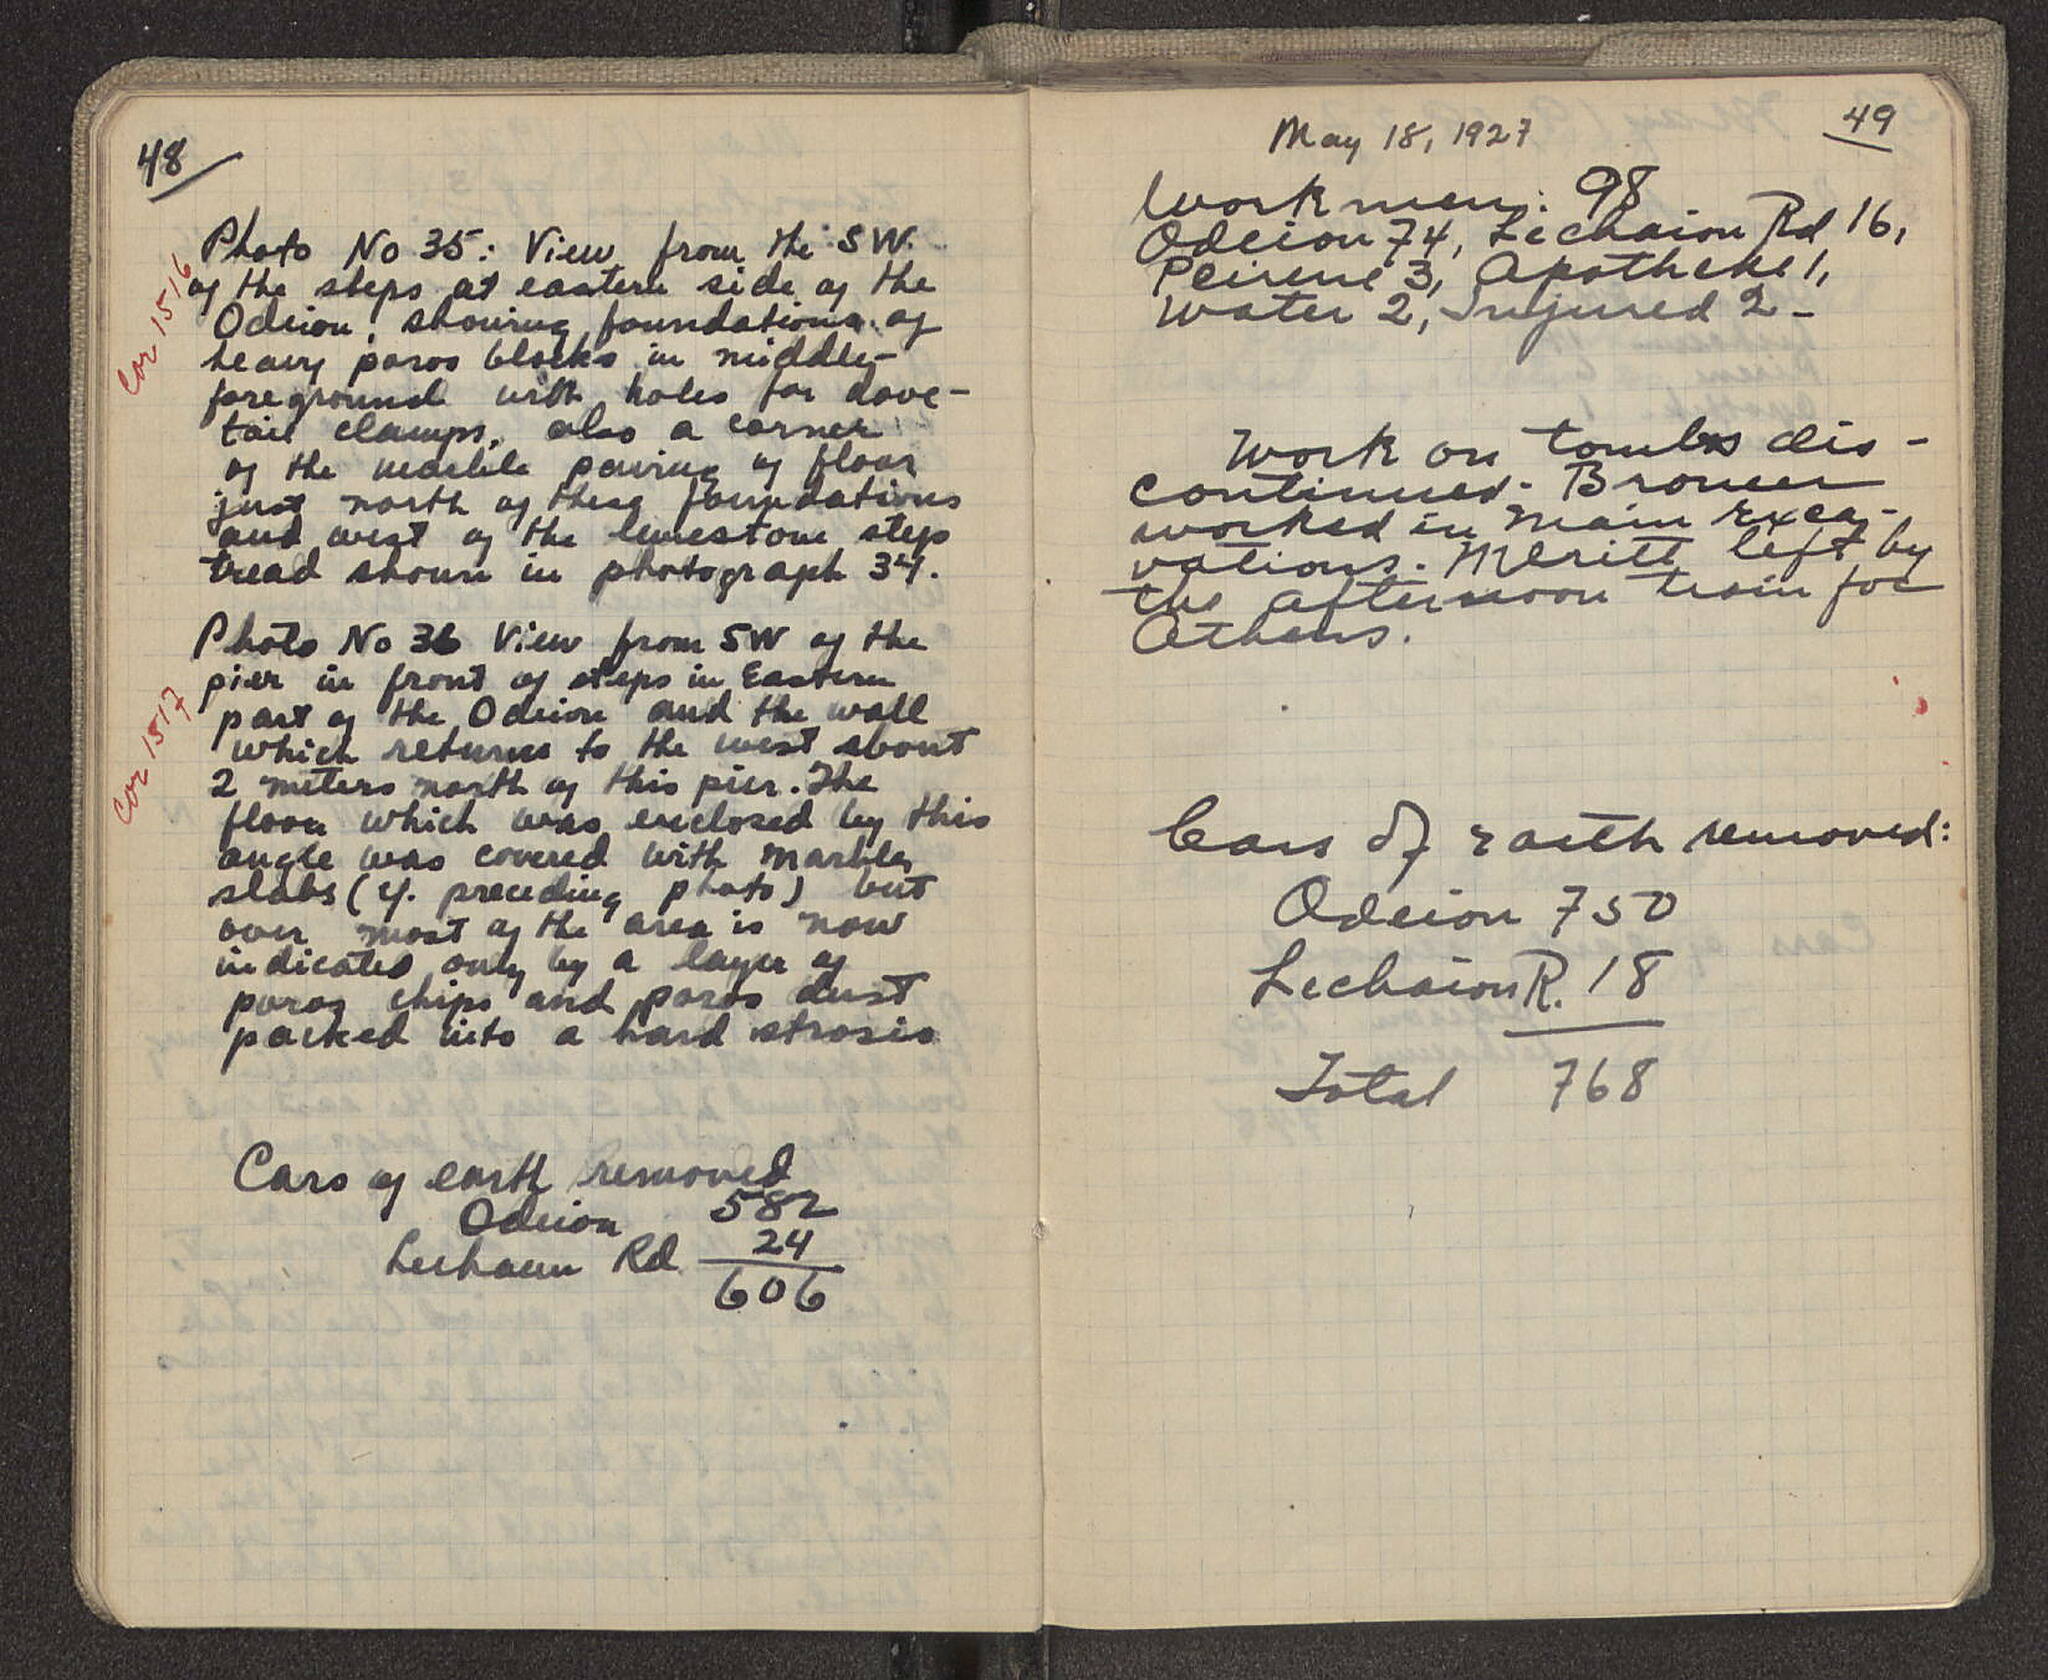 48
Cor 1516
Photo No 35: View from the SW.
of the steps at eastern side of the
Odeion, showing foundations of
heavy poros blocks in middle-
foreground with holes for dove-
tail clamps, also a corner
of the marble paving of floor
just north of these foundations
and west of the limestone step
tread shown in photograph 34.
Cor 1517
Photo No 36 View from SW of the
pier in front of steps in Eastern
part of the Odeion and the wall
which returns to the west about
2 meters north of this pier. The
floor which was enclosed by this
angle was covered with marble
slabs (cf. preceding photo) but
over most of the area is now
indicated only by a layer of
poros chips and poros dust
packed into a hard strosis
Cars of earth removed
Odeion 582
Lechaeum Rd 24
606
49
May 18, 1927
Workmen: 98
Odeion 74, Lechaion Rd 16,
Peirene 3, Apotheke 1,
Water 2, Injured 2-
Work on tombs dis-
continued. Broneer
worked in main exca-
vations. Meritt left by
the afternoon train for
Athens.
Cars of earth removed:
Odeion 750
Lechaion R. 18
Total 768